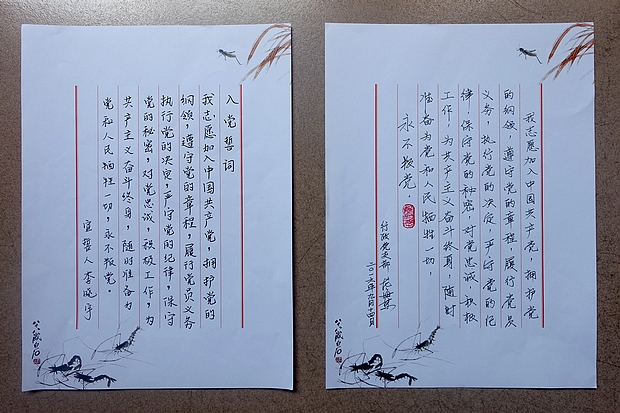 入党誓词
我志愿加入中国共产党，拥护党的
纲领，遵守党的章程，履行党员义务
执行党的决定，严守党的纪律，保守
党的秘密，对党忠诚，积极工作，为
共产主义奋斗终身，随时准备为
党和人民牺牲一切，永不叛党。
宣誓人 李晓宇
我志愿加入中国共产党，拥护党
的纲领，遵守党的章程，履行党员
义务，执行党的决定，严守党的纪
律，保守党的秘密，对党忠诚，积极
工作，为共产主义奋斗终身，随时
准备为党和人民牺牲一切，
永不叛党。
行政党支部